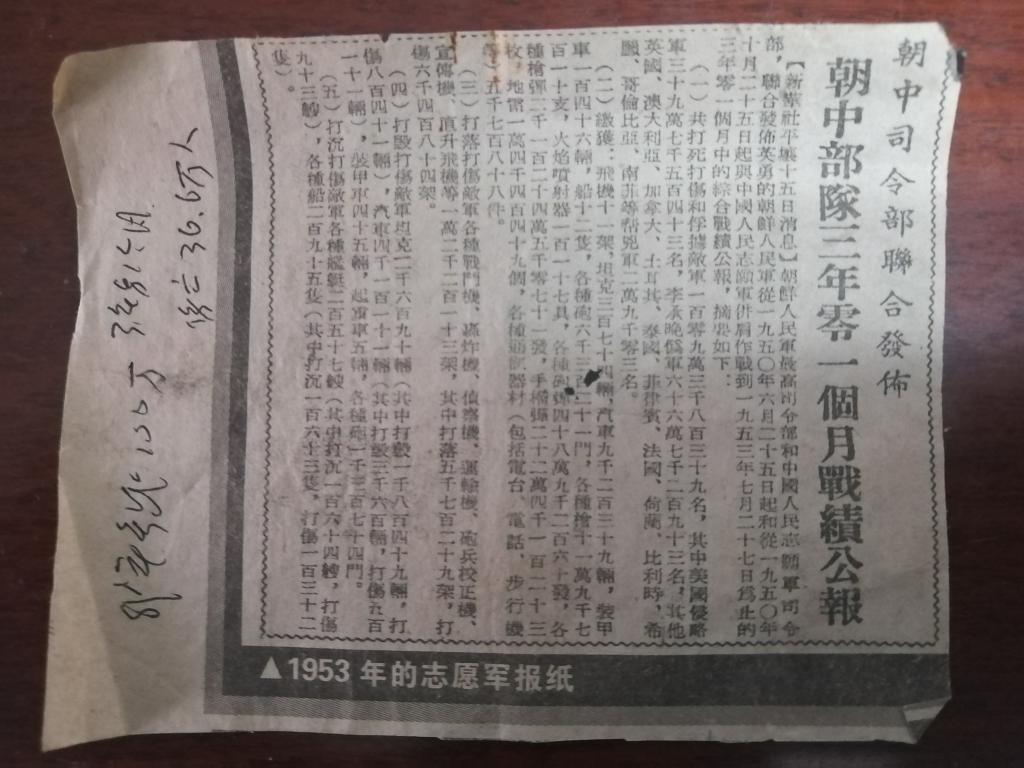 朝中司令部聯合發佈
朝中部隊三年零一個月戰績公報
【新華社平壤十五日消息】朝鮮人民軍最高司令部和中國人民志願軍司令
部，聯合發佈英勇的朝鮮人民軍從一九五〇年六月二十五日起和從一九五〇年
十月二十五日起與中國人民志願軍併肩作戰到一九五三年七月二十七日爲止的
三年零一個月中的綜合戰績公報，摘要如下：
（一）共打死打傷和俘擄敵軍一百零九萬三千八百三十九名，其中美國侵略
軍三十九萬七千五百四十三名，李承晚僞軍六十六萬七千二百九十三名，其他
英國、澳大利亞、加拿大、土耳其、泰國、菲律賓、法國、荷蘭、比利時、希
臘、哥倫比亞、南非等幫兇軍二萬九千零三名。
（二）繳獲：飛機十一架，坦克三百七十四輛，汽車九千二百三十九輛，裝甲
車一百四十六輛，船十二隻，各種砲六千三百二十一門，各種槍十一萬九千七
百一十支，火焰噴射器一百一十七具，各種砲彈四十八萬九千二百六十發，各
種槍彈二千一百二十四萬五千零七十一發，手榴彈二十二萬四千一百二十三
枚，地雷一萬四千四百四十九個，各種通訊器材（包括電台、電話、步行機
等）五千七百八十八件。
（三）打落打傷敵軍各種戰鬥機、轟炸機、偵察機、運輸機、砲兵校正機、
宣傳機、直升飛機等一萬二千二百一十三架，其中打落五千七百二十九架，打
傷六千四百八十四架。
（四）打毀打傷敵軍坦克二千六百九十輛（其中打毀一千八百四十九輛，打
傷八百四十一輛），汽車四千一百一十一輛（其中打毀三千六百輛，打傷五百
一十一輛），裝甲車四十五輛，起重車五輛，各種砲一千三百七十四門。
（五）打沉打傷敵軍各種艦艇二百五十七艘（其中打沉一百六十四艘，打傷
九十三艘），各種船二百九十五隻（其中打沉一百六十三隻，打傷一百三十二
隻）。
▲1953 年的志愿军报纸
100万
36.6万人